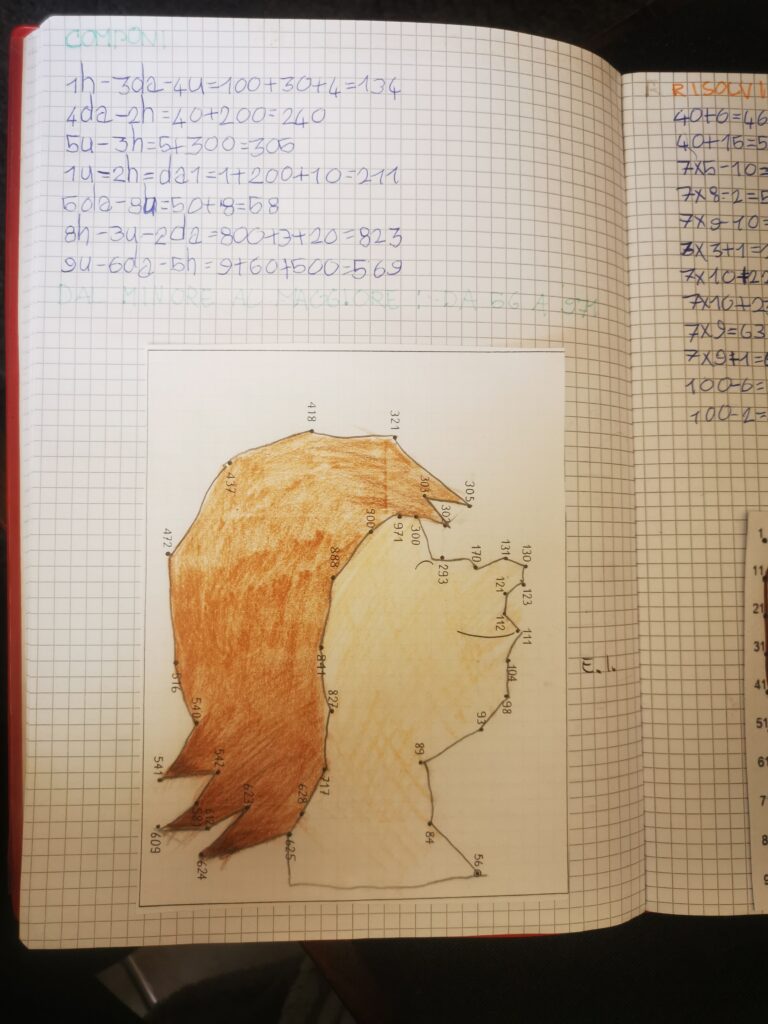 COMPONI
1h-3da-4u=100+30+4=134
4da-2h=40+200=240
5u-3h=5+300=305
1u=2h=da1=1+200+10=211
5da-8u=50+8=58
8h-3u-2da=800+3+20=823
9u-6da-5h=9+60+500=569
DAL MINORE AL MAGGIORE DA 56 A 971
418
321
437
305
303
302
472
900
971
300
131
130
170
293
888
123
121
112
111
841
104
516
98
827
540
93
89
541
542
717
623
628
84
612
609
625
56
624
RISOLVI
40+6=46
40+15=5
7x5-10=
7x8-2=5
7x9-10=
3x3+1=1
7x10+22
7x10+2
7x9=63
7x9+1=6
100-6=
100-2=
1
11
21
31
41
51
61
7
8
9